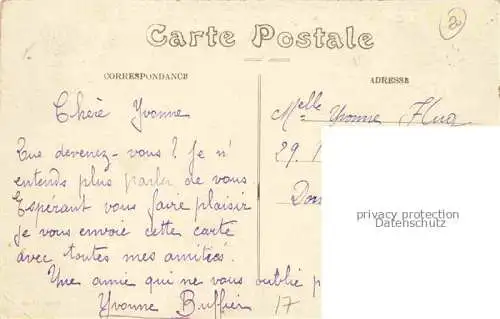 Carte Postale
2
CORRESPONDANCE
ADRESSE
Chère Yvonne
Que devenez-vous ? Je n'
entends plus parler de vous
Espérant vous faire plaisir
je vous envoie cette carte
avec toutes mes amitiés.
Une amie qui ne vous oublie p
Yvonne Buffier
17
Melle Yvonne Hua
29.
privacy protection
www.oldthing.com